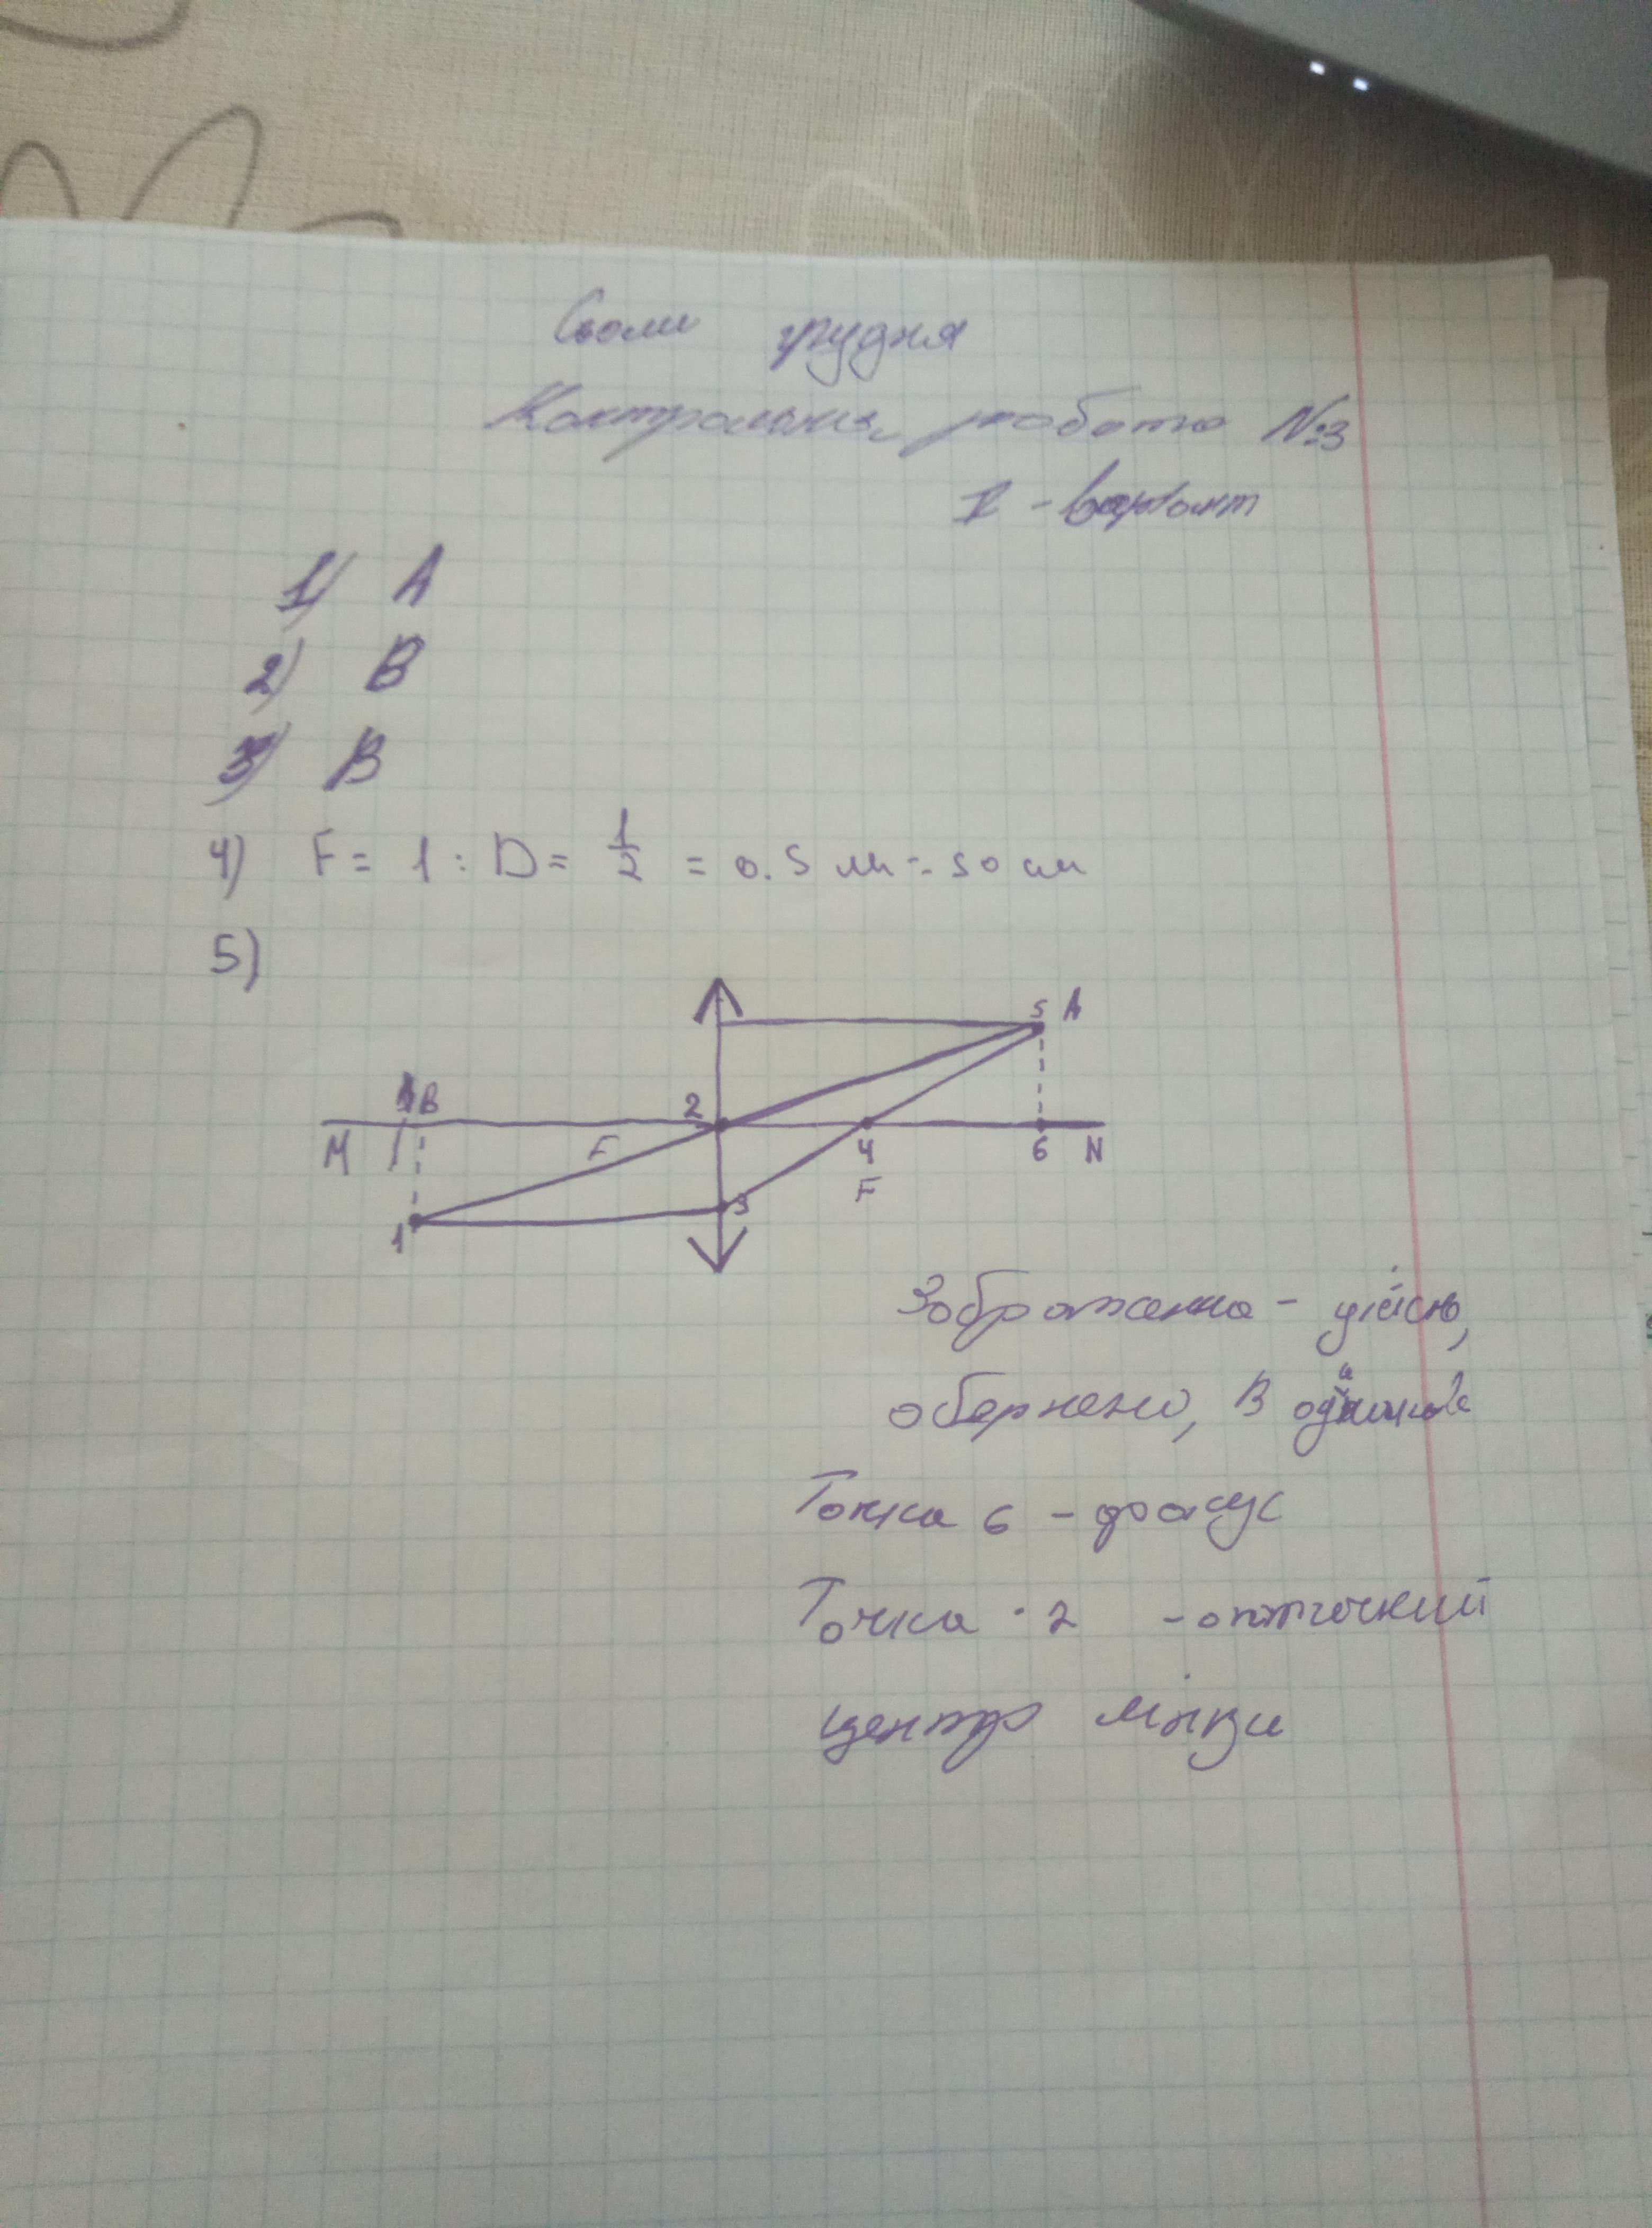 Сьоме грудня
Контрольна робота №3
II - варіант
1) А
2) В
3) В
4) F = 1 : D = 1/2 = 0.5 м = 50 см
5)
5 А
В
2
M F 4 6 N
F
3
1
Зображення - дійсне,
обернене, В однакове
Точка 6 - фокус
Точка 2 - оптичний
центр лінзи